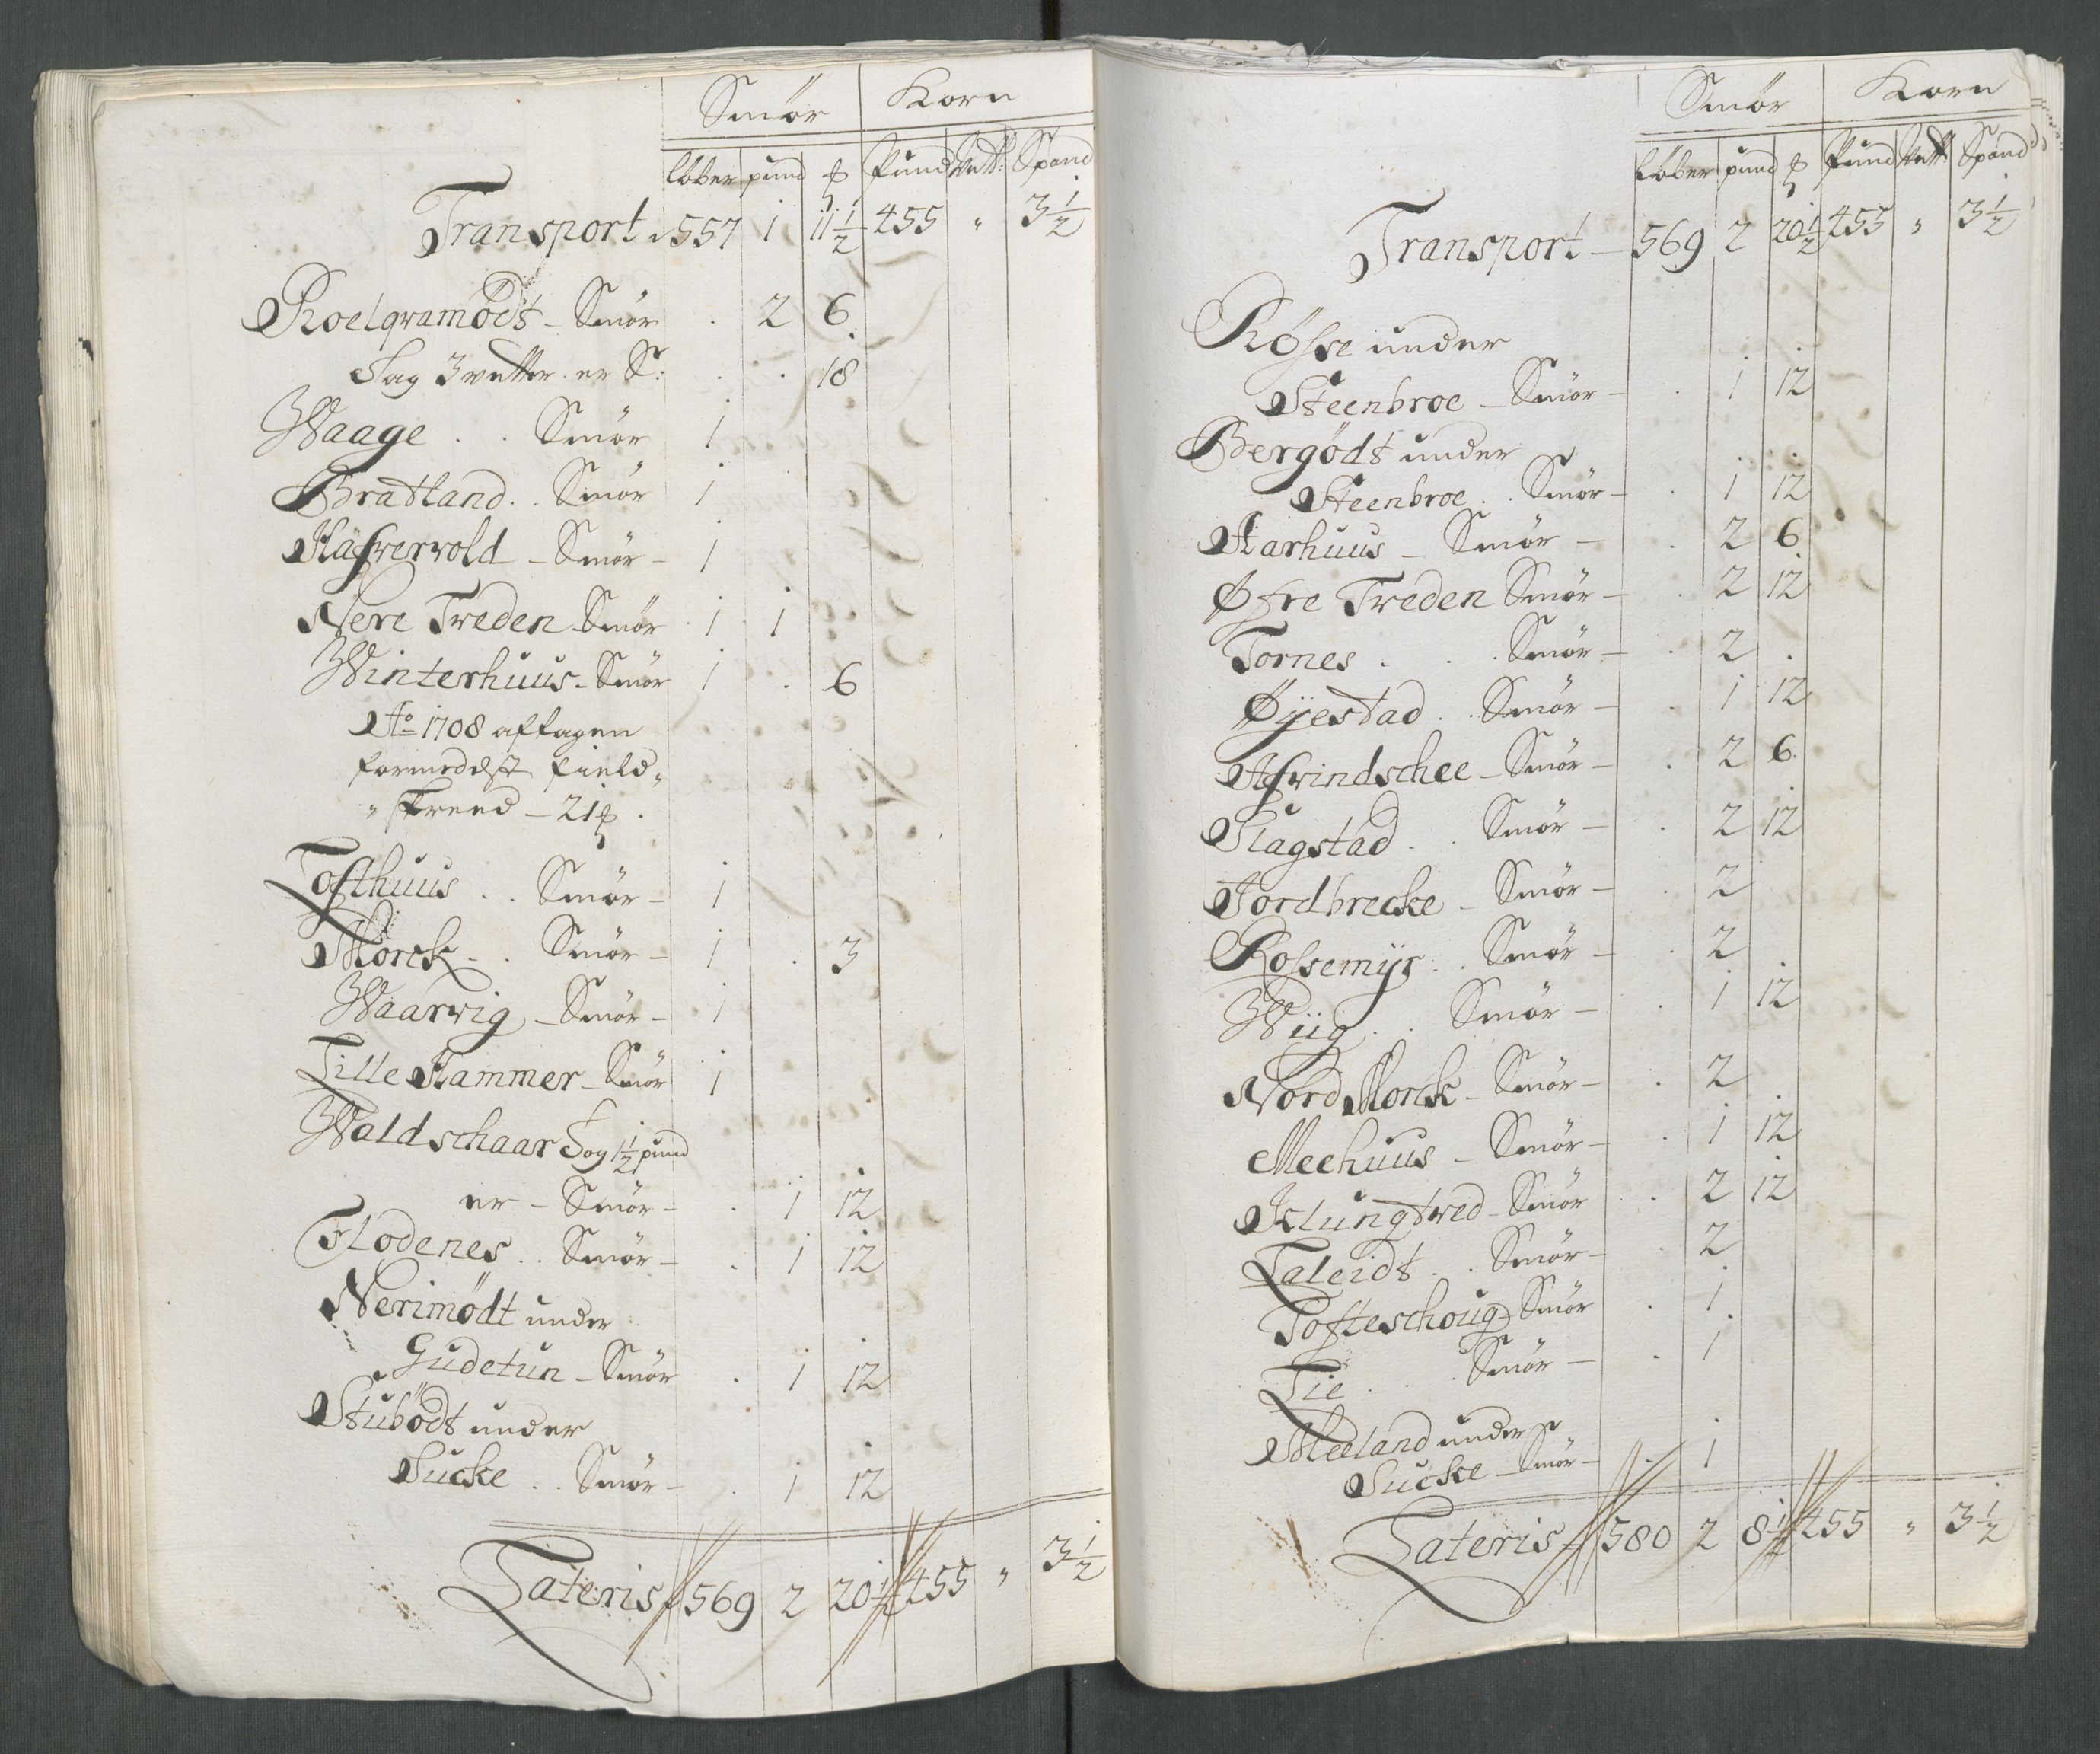 Smör Korn
löber pund ℔ Pund Vett: Spand
Transport 557 1 11½ 455 " 3½
Roelqvamödt - Smör . 2 6
Lag 3 vetter er S: . . 18
Waage . . Smör 1
Bratland . . Smör 1
Hafwerwold - Smör - 1
Nere Treden Smör 1 1
Winterhuus - Smör 1 . 6
Ao 1708 aftagen
formedelst Field„
„skreed - 21 ℔.
Tofthuus . . Smör - 1
Morck - . Smör - 1 . 3
Waarwig - Smör - 1
Lille Hammer - Smör 1
Waldschaar Log 1½ pund
er - Smör - . 1 12
Flodenes . . Smör - . 1 12
Nerimödt under
Gudetun - Smör . 1 12
Stubödt under
Sucke . . Smör - . 1 12
Lateris 569 2 20½ 455 " 3½
Smör Korn
Löber pund ℔ Pund Vett: Spand
Transport - 569 2 20½ 455 " 3½
Rösse under
Steenbroe - Smör - . 1 12
Bergödt under
Steenbroe . . Smör - . 1 12
Aarhuus - Smör - . 2 6
Øfre Treden Smör - . 2 12
Tornes . . . Smör - . 2 .
Øyestad . . Smör - . 1 12
Afwindschee - Smör - . 2 6
Flagstad . . Smör - . 2 12
Jordbrecke - Smör - . 2
Rossemyr . . Smör - . 2
Wiig . . Smör - . 1 12
Nord Morck - Smör - . 2
Meehuus - Smör - . 1 12
Islungtwed - Smör . 2 12
Laleidt . . Smör - . 2
Tofteschoug - Smör . 1
Lie . . . Smör - . 1
Meeland under
Sucke - Smör - . 1
Lateris 580 2 8½ 455 " 3½